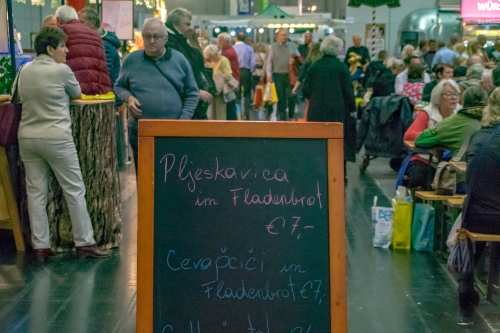 Pljeskavica
im Fladenbrot
€7,-
Cevapčići im
Fladenbrot €7,